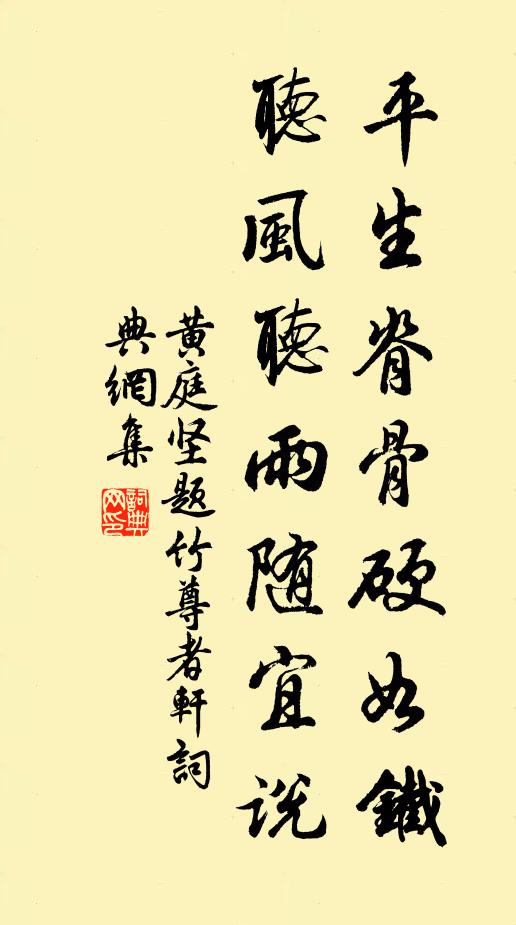 平生脊骨硬如鐵
聽風聽雨随宜說
黄庭坚題竹尊者軒詞
典網集
詞典
网印